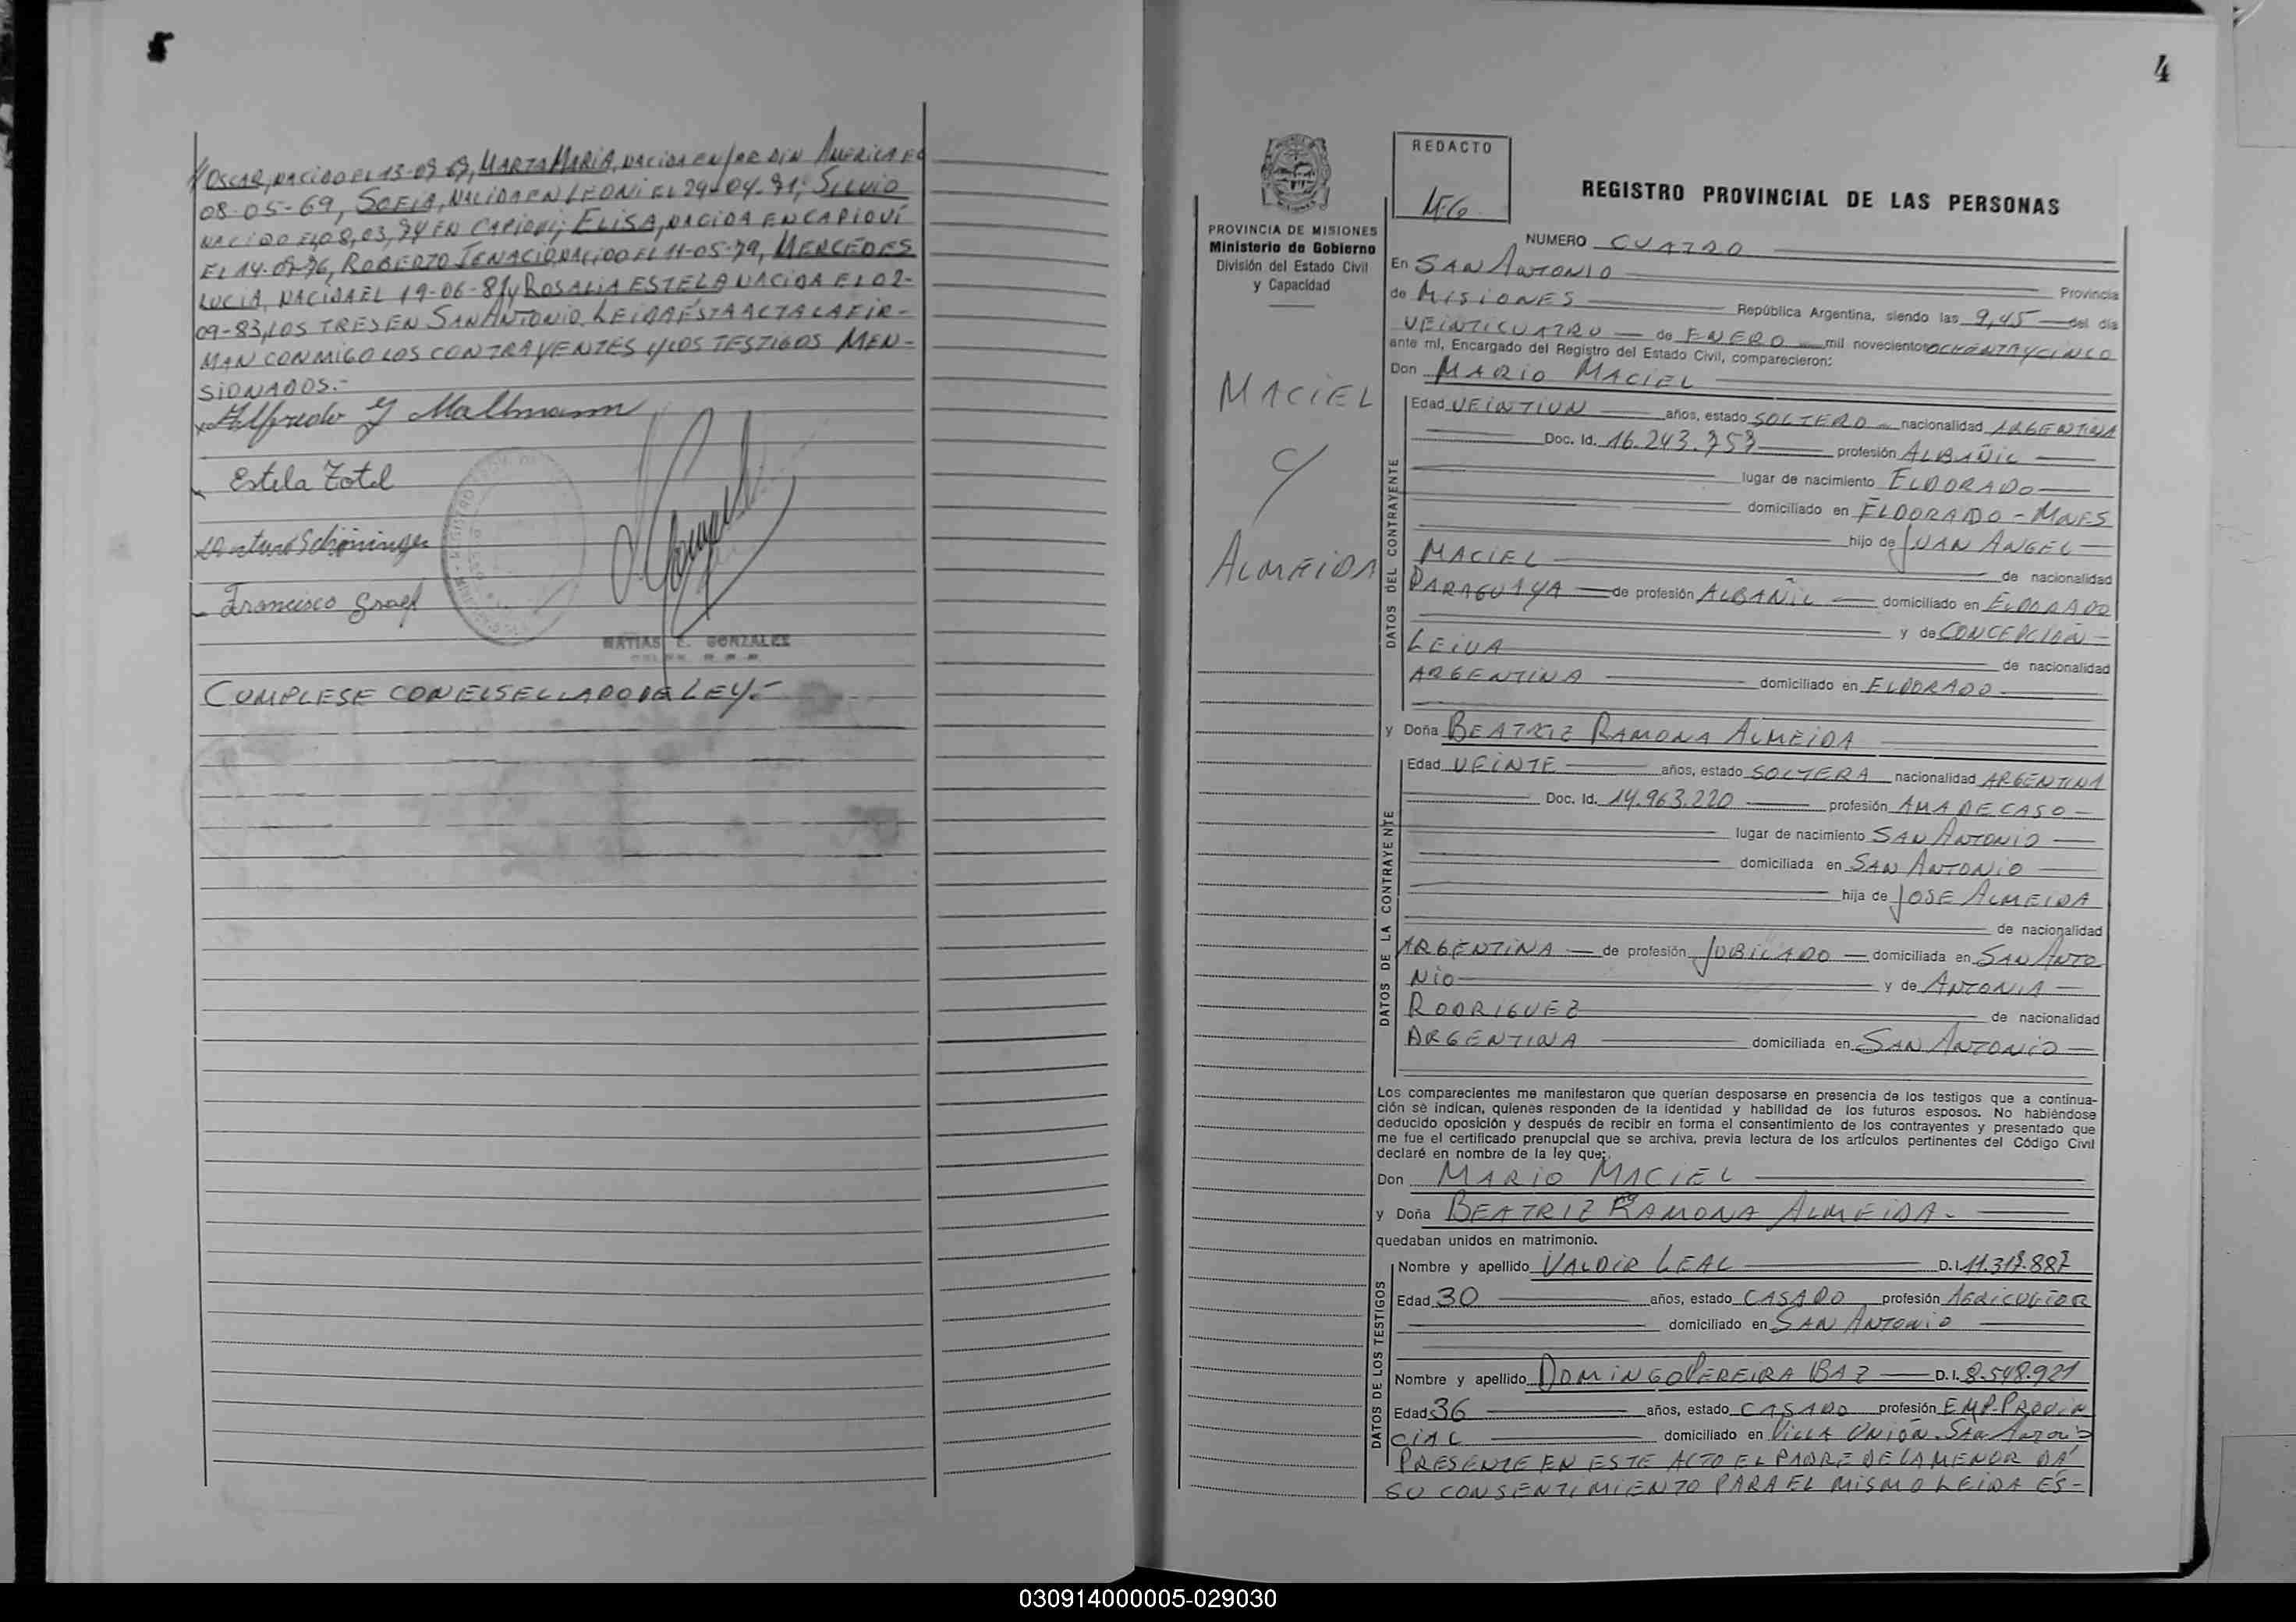 // OSCAR, NACIDO EL 13-09-67, MARTA MARIA, NACIDA EN JARDIN AMERICA EL
08-05-69, SOFIA, NACIDA EN LEONI EL 29-04-71; SILVIO
NACIDO EL 08,03,74 EN CAPIOVI; ELISA, NACIDA EN CAPIOVÍ
EL 14-07-76, ROBERTO IGNACIO, NACIDO EL 11-05-79, MERCEDES
LUCIA, NACIDA EL 19-06-81 y ROSALIA ESTELA NACIDA EL 02-
09-83, LOS TRES EN SAN ANTONIO. LEIDA ÉSTA ACTA LA FIR-
MAN CONMIGO LOS CONTRAYENTES y LOS TESTIGOS MEN-
SIONADOS.-
Alfredo Y Mallmann
Estela Zotel
Arturo Schöninger
Francisco Graef
MATIAS E. GONZALEZ
CUMPLESE CON EL SELLADO DE LEY.-
4
REDACTO
PROVINCIA DE MISIONES
Ministerio de Gobierno
División del Estado Civil
y Capacidad
MACIEL
Y
ALMEIDA
REGISTRO PROVINCIAL DE LAS PERSONAS
NUMERO CUATRO
En SAN ANTONIO Provincia
de MISIONES República Argentina, siendo las 9,45 del día
VEINTICUATRO de ENERO mil novecientos OCHENTA Y CINCO
ante mí, Encargado del Registro del Estado Civil, comparecieron:
Don MARIO MACIEL
DATOS DEL CONTRAYENTE
Edad VEINTIUN años, estado SOLTERO nacionalidad ARGENTINA
Doc. Id. 16.243.757 profesión ALBAÑIL
lugar de nacimiento ELDORADO
domiciliado en ELDORADO - MNES
hijo de JUAN ANGEL
MACIEL de nacionalidad
PARAGUAYA de profesión ALBAÑIL domiciliado en ELDORADO
y de CONCEPCIÓN
LEIVA de nacionalidad
ARGENTINA domiciliado en ELDORADO
y Doña BEATRIZ RAMONA ALMEIDA
DATOS DE LA CONTRAYENTE
Edad VEINTE años, estado SOLTERA nacionalidad ARGENTINA
Doc. Id. 14.963.220 profesión AMA DE CASO
lugar de nacimiento SAN ANTONIO
domiciliada en SAN ANTONIO
hija de JOSE ALMEIDA
de nacionalidad
ARGENTINA de profesión JUBILADO domiciliada en SAN ANTO
NIO y de ANTONIA
RODRIGUEZ de nacionalidad
ARGENTINA domiciliada en SAN ANTONIO
Los comparecientes me manifestaron que querían desposarse en presencia de los testigos que a continua-
ción se indican, quienes responden de la identidad y habilidad de los futuros esposos. No habiéndose
deducido oposición y después de recibir en forma el consentimiento de los contrayentes y presentado que
me fue el certificado prenupcial que se archiva, previa lectura de los artículos pertinentes del Código Civil
declaré en nombre de la ley que:
Don MARIO MACIEL
y Doña BEATRIZ RAMONA ALMEIDA.
quedaban unidos en matrimonio.
DATOS DE LOS TESTIGOS
Nombre y apellido VALDIR LEAL D.I. 11.317.887
Edad 30 años, estado CASADO profesión AGRICULTOR
domiciliado en SAN ANTONIO
Nombre y apellido DOMINGO PEREIRA BAZ D.I. 8.548.921
Edad 36 años, estado CASADO profesión EMP. PROVIN
CIAL domiciliado en VILLA UNIÓN. SAN ANTONIO
PRESENTE EN ESTE ACTO EL PADRE DE LA MENOR DÁ
SU CONSENTIMIENTO PARA EL MISMO LEIDA ES-
030914000005-029030